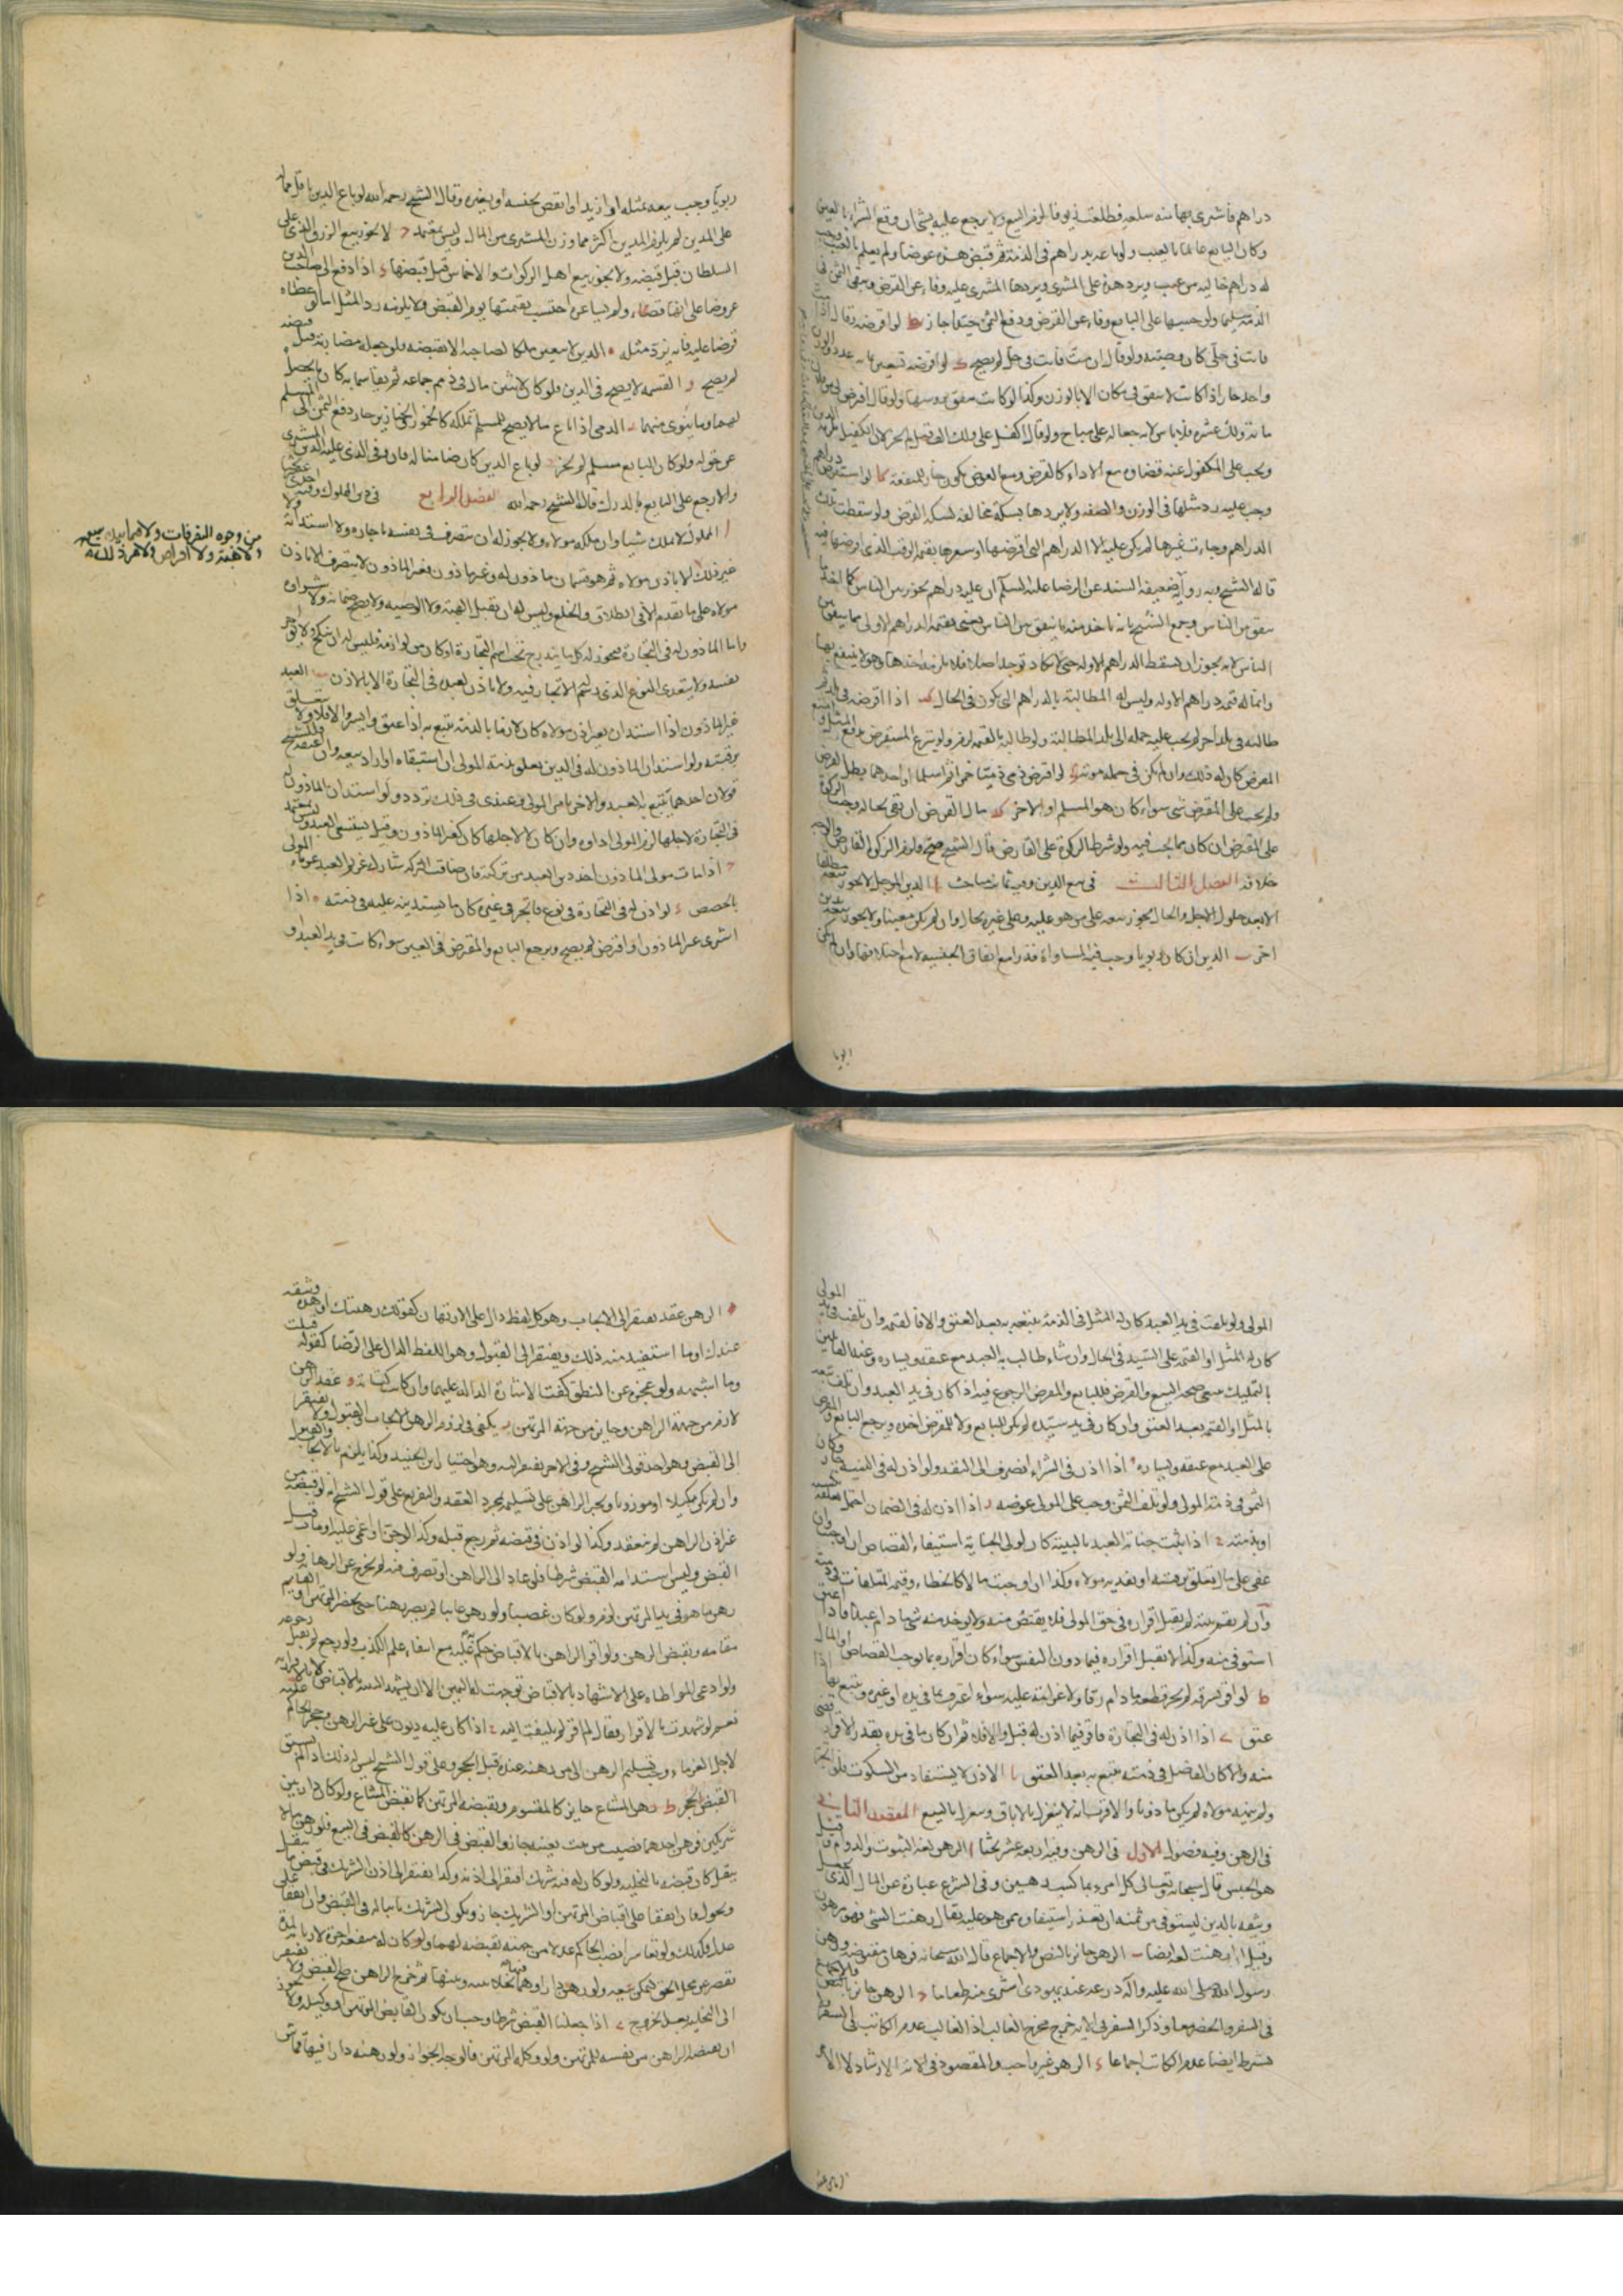 دراهم فاشترى بها منه سلعة فطلعت زيوفا لزم البيع ولا يرجع عليه بشئ ان وقع الشراء بالعين
وكان البايع عالما بالعيب ولو باعه بدراهم في الذمة ثم قبض هذه عوضا ولم يعلم بالعيب وجب
له دراهم خالية من عيب ويرد هذه على المشترى ويردها المشترى عليه وفاء عن القرض ويبقى الثمن في
الذمة سليما ولو حسبها على البايع وفاء عن القرض ودفع الثمن جيدا جاز يط لو اقرضه وقال اذا مت
فانت في حل كان وصية ولو قال ان مت فانت في حل لم يصح ك لو اقرضه تسعين بمائة عددا والوزن
واحد جاز اذا كانت لا تنفق في مكان الا بالوزن وكذا لو كانت تنفق برؤسها ولو قال اقرض لي من فلان
مائة ولك عشرة فلا باس لانه جعالة على مباح ولو قال اكفل عني ولك الف فيصل لم يجز لان الكفيل يلزمه الدين
ويجب على المكفول عنه قضاؤه مع الاداء كالقرض ومع العوض يكون جارا للمنفعة كا لو استقرض دراهم
وجب عليه رد مثلها في الوزن والصفة ولا يردها بسكة مخالفة لسكة القرض ولو سقطت تلك
الدراهم وجاءت غيرها لم يكن عليه الا الدراهم التي اقرضها او سعرها بقيمة الوقت الذي اقرضها فيه
قاله الشيخ وبه رواية ضعيفة السند عن الرضا عليه السلام ان عليه دراهم يجوز بين الناس كما اخذ ما
ينفق بين الناس وجمع الشيخ بانه ياخذ منه ما ينفق بين الناس يعني بقيمة الدراهم الاولى مما ينفق بين
الناس لانه يجوز ان يسقط الدراهم الاولة حتى لا يكاد توجد اصلا فلا يلزمه اخذها وهو لا ينتفع بها
وانما له قيمة دراهم الاولة وليس له المطالبة بالدراهم التي يكون في الحال كب اذا اقرضه في بلد ثم
طالبه في بلد اخر لم يجب عليه حمله الى بلد المطالبة ولو طالبه بالقيمة لزم ولو تبرع المستقرض بدفع المثل وامتنع
المقرض كان له ذلك وان لم يكن في حمله مؤنة كج لو اقرض ذمي ذميا خمرا ثم اسلما او احدهما بطل القرض
ولم يجب على المقترض شئ سواء كان هو المسلم او الاخر كد مال القرض ان بقي بحاله وجبت الزكوة
على المقترض ان كان مما يجب فيه ولو شرط الزكوة على القارض قال الشيخ صح ولزم الزكوة القارض والوجه
خلافه الفصل الثالث في بيع الدين وفيه ثمانية مباحث ا الدين المؤجل لا يجوز بيعه مطلقا
الا بعد حلول الاجل والحال يجوز بيعه على من هو عليه وعلى غيره بحال وان لم يكن معينا ولا يجوز بيعه بدين
اخر ب الدين ان كان ربويا وجب فيه المساواة قدرا مع اتفاق الجنسية لا مع اختلافها وان لم يكن
ربويا وجب بيعه بمثله او ازيد او انقص بجنسه او بغيره وقال الشيخ رحمه الله لو باع الدين باقل مما له
على المدين لم يلزم المدين اكثر مما وزن المشترى من المال وليس بمعتمد ج لا يجوز بيع الرزق الذي على
السلطان قبل قبضه ولا يجوز بيع اهل الزكوات والاخماس قبل قبضها د اذا دفع الى صاحب الدين
عروضا على انها قضاء ولم يساعره احتسب بقيمتها يوم القبض ولا يلزمه رد المثل اما لو اعطاه
قرضا عليه فانه يرد مثله ه الدين لا يتعين ملكا لصاحبه الا بقبضه فلو جعله مضاربة قبل قبضه
لم يصح و القسمة لا يصح في الدين فلو كان لاثنين مال في ذمم جماعة ثم تقاسما به كان ما يحصل
لهما وما يتوى منهما ز الذمي اذا باع ما لا يصح للمسلم تملكه كالخمور والخنازير جاز دفع الثمن الى المسلم
عن حق له ولو كان البايع مسلم لم يجز ح لو باع الدين كان ضامنا له فان وفى الذي عليه الدين المشترى
والا رجع على البايع بالدرك قاله الشيخ رحمه الله الفصل الرابع في دين المملوك وفيه احد عشر بحثا
ا المملوك لا يملك شيئا وان ملكه مولاه ولا يجوز له ان يتصرف في نفسه باجارة ولا استدانة ولا
غير ذلك الا باذن مولاه ثم هو قسمان ماذون له وغير ماذون فغير الماذون لا يتصرف الا باذن
مولاه على ما تقدم الا في الطلاق والخلع وليس له ان يقبل الهبة ولا الوصية ولا يصح ضمانه ولا شراوه
واما الماذون له في التجارة فيجوز له كل ما يندرج تحت اسم التجارة او كان من لوازمه فليس له ان ينكح ولا يؤجر
نفسه ولا يتعدى النوع الذي رسم له الاتجار فيه ولا ياذن لعبده في التجارة الا بالاذن ب العبد
غير الماذون اذا استدان بغير اذن مولاه كان لازما بالذمة يتبع به اذا عتق وايسر والا فلا ولا يتعلق
برقبته ولو استدان الماذون له في الدين يعلق بذمة المولى ان استبقاه او اراد بيعه وان اعتقه فللشيخ
قولان احدهما يتبع به العبد والاخر يلزم المولى وعندي في ذلك تردد ولو استدان الماذون له
في التجارة لاجلها لزم المولى اداوه وان كان لا لاجلها كان كغير الماذون وقيل يستسعى العبد وليس بمعتمد
ج اذا مات مولى الماذون اخذ دين العبد من تركته فان ضاقت التركة شارك غرماء العبد غرماء المولى
بالحصص د لو اذن له في التجارة في نوع فاتجر في غيره كان ما يستدينه عليه في ذمته ه اذا
اشترى غير الماذون او اقترض لم يصح ويرجع البايع والمقرض في العين سواء كانت في يد العبد او
من وجوه التصرفات ولا فيما بيده ببيع
ولا هبة ولا اقراض ولا غير ذلك
المولى ولو تلفت في يد العبد كان له المثل في الذمة يتبعه به بعد العتق والا فالقيمة وان تلفت في يد المولى
كان له المثل او القيمة على السيد في الحال وان شاء طالب به العبد مع عتقه ويساره وعند القائلين
بالتمليك ينبغي صحة البيع والقرض فللبايع والمقرض الرجوع فيه اذا كان في يد العبد وان تلف تبعه
بالمثل او القيمة بعد العتق وان كان في يد سيده لم يكن للبايع ولا للمقرض اخذه ويرجع البايع والمقرض
على العبد مع عتقه ويساره و اذا اذن في الشراء انصرف الى النقد ولو اذن له في النسية جاز وكان
الثمن في ذمة المولى ولو تلف الثمن وجب على المولى عوضه ز اذا اذن له في الضمان احتمل تعلقه بكسبه
او بذمته ح اذا ثبت جناية العبد بالبينة كان لولي الجناية استيفاء القصاص ان اوجبت وان
عفى على مال تعلق برقبته او يفديه مولاه وكذا ان اوجبت مالا كالخطاء وقيمة المتلفات في ذمته
وان لم يقم بينة لم يقبل اقراره في حق المولى فلا يقتص منه ولا يوخذ منه شئ ما دام عبدا فاذا اعتق
استوفى منه وكذا لا يقبل اقراره فيما دون النفس سواء كان اقراره بما يوجب القصاص او المال
ط لو اقر بسرقة لم يجز قطعه ما دام رقا ولا غرامة عليه سواء اعترف بما في يده او غيره ويتبع بها اذا
عتق ي اذا اذن له في التجارة فاقر فيما اذن له قبل والا فلا ثم ان كان ما في يده بقدر الاقرار قضى
منه والا كان الفاضل في ذمته يتبع به بعد العتق يا الاذن لا يستفاد من السكوت فلو اتجر
ولم ينهه مولاه لم يكن ماذونا والاقرب انه لا ينعزل بالاباق وينعزل بالبيع المقصد الثاني
في الرهن وفيه فصول الاول في الرهن وفيه اربعة عشر بحثا ا الرهن لغة الثبوت والدوام وقيل
هو الحبس قال سبحانه وتعالى كل امرء بما كسب رهين وفي الشرع عبارة عن المال الذي يجعل
وثيقة بالدين ليستوفى من ثمنه ان تعذر استيفاوه ممن هو عليه يقال رهنت الشئ فهو مرهون
وقيل ارهنت لغة ايضا ب الرهن جائز بالنص والاجماع قال الله سبحانه فرهان مقبوضة ورهن
رسول الله صلى الله عليه وآله درعه عند يهودي اشترى منه طعاما ج الرهن جائز بالنص والاجماع
في السفر والحضر معا وذكر السفر في الاية خرج مخرج الغالب اذ الغالب عدم الكاتب في السفر ولا
يشترط ايضا عدم الكاتب اجماعا د الرهن غير واجب والمقصود في الاية الارشاد لا الامر
ه الرهن عقد يفتقر الى الايجاب وهو كل لفظ دال على الارتهان كقولك رهنتك او هذه وثيقة
عندك او ما استفيد منه ذلك ويفتقر الى القبول وهو اللفظ الدال على الرضا كقوله قبلت
وما اشبهه ولو عجز عن النطق كفت الاشارة الدالة عليهما وان كانت كتابة و عقد الرهن
لازم من جهة الراهن وجايز من جهة المرتهن ز يكفي في لزوم الرهن الايجاب والقبول ولا يفتقر
الى القبض وهو احد قولي الشيخ وفي الاخر يفتقر اليه وهو اختيار ابن الجنيد وكذا يلزم بالايجاب والقبول
وان لم يكن مكيلا او موزونا ويجبر الراهن على تسليمه بمجرد العقد والتفريع على قول الشيخ انه لو قبضه من
غير اذن الراهن لم ينعقد وكذا لو اذن في قبضه ثم رجع قبله وكذا لو جن او اغمى عليه او مات قبل
القبض وليس استدامة القبض شرطا فلو عاد الى الراهن او تصرف فيه لم يخرج عن الرهانة ولو
رهن ما هو في يد المرتهن لزم ولو كان غصبا ولو رهن غايبا لم يصر رهنا حتى يحضر المرتهن او القايم
مقامه ويقبض الرهن ولو اقر الراهن بالاقباض حكم عليه مع انتفاء علم الكذب ولو رجع لم يقبل رجوعه
ولو ادعى المواطاة على الاشهاد بالاقباض توجهت له اليمين الا ان يشهد البينة بالاقباض
نعم لو شهدت بالاقرار فقال لم اقر لم يلتفت اليه ح اذا كان عليه ديون على غير الرهن وحجر الحاكم عليه
لاجل الغرماء وجب تسليم الرهن الى من رهنه عنده قبل الحجر وعلى قول الشيخ ليس له ذلك اذا لم يسبق
القبض الحجر ط رهن المشاع جايز كالمقسوم ويقبضه المرتهن كما يقبض المشاع ولو كان دار بين
شريكين فرهن احدهما نصيبه من بيت بعينه جاز والقبض في الرهن كالقبض في البيع فلو رهن ما لا ينقل
ينقل كان قبضه بالتخلية ولو كان له فيه شريك افتقر الى اذنه وكذا يفتقر الى اذن الشريك في قبض ما ينقل
ويحول فان اتفقا على اقباض المرتهن او الشريك جاز ويكون الشريك نايبا له في القبض وان اتفقا على
عدل فكذلك ولو تعاسرا نصب الحاكم عدلا من جهته يقبضه لهما ولو كان له منفعة اجره لا زيادة
تقصر عن محل الحق ليمكن بيعه ولو رهن دارا وهما فيها فخلا بينه وبينها ثم خرج الراهن صح القبض ولا يفتقر
الى التخلية بعد خروجه ي اذا جعلنا القبض شرطا وجب ان يكون القابض المرتهن او وكيله ولا يجوز
ان يقبض الراهن من نفسه للمرتهن ولو وكله المرتهن فالوجه الجواز ولو رهنه دارا فيها قماش